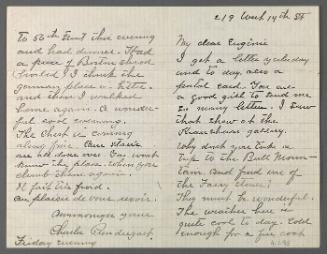 219 West 14th St
My dear Eugénie
I got a letter yesterday
and to day also a
postal card. You are
a good girl to send me
so many letters. I saw
that show at the
gallery.
Why dont you take a
trip to the Bull Moun-
tain and find one of
the Fairy Stones?
They must be wonderful.
The weather here is
quite cool to day. Cold
enough for a fur coat
To 58th Street this evening
and had dinner. Had
a piece of Boston schrod
(broiled) I think the
and then I walked
home again. A wonder-
ful cool evening.
The Chest is coming
along fine. Our stairs
are all done over. You wont
know the place when you
climb them again.
Il fait très froid.
Au plaisir de vous revoir.
yours
Charles Prendergast.
Friday evening